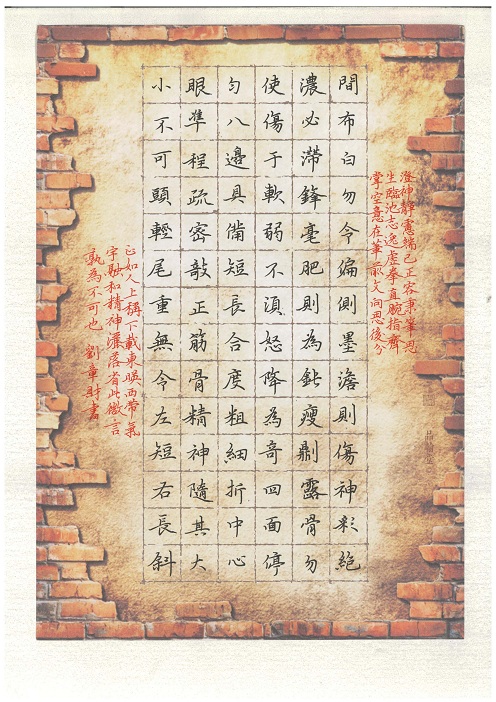 澄神靜慮端己正容秉筆思
生臨池志逸虛拳直腕指齊
掌空意在筆前文向思後分
間布白勿令偏側墨澹則傷神彩絕
濃必滯鋒毫肥則為鈍瘦則露骨勿
使傷于軟弱不須怒降為奇四面停
勻八邊具備短長合度粗細折中心
眼準程疏密敧正筋骨精神隨其大
小不可頭輕尾重無令左短右長斜
正如人上稱下載東暎西帶氣
宇融和精神灑落省此微言
孰為不可也 劉章財書